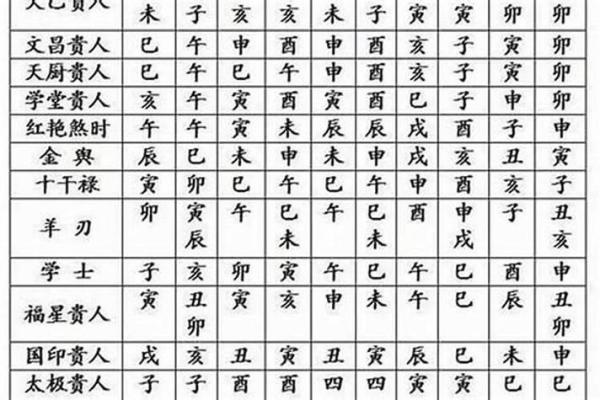 天乙貴人 未 子 亥 亥 未 子 寅 寅 卯 卯
文昌貴人 巳 午 申 酉 申 酉 亥 子 寅 卯
天厨貴人 巳 午 巳 午 申 酉 亥 子 寅 卯
学堂貴人 亥 午 寅 酉 寅 酉 巳 子 申 卯
红艳煞时 午 午 寅 未 辰 辰 戌 酉 子 申
金輿 辰 巳 未 申 未 申 戌 亥 丑 寅
十干禄 寅 卯 巳 午 巳 午 申 酉 亥 子
羊刃 卯 寅 午 巳 午 巳 酉 申 子 丑
辰 未 未 戌 亥
学士 子 亥 卯 寅 午 巳 午 巳 酉 申
福星貴人 寅 丑 寅 亥 申 未 午 巳 辰 丑
卯 卯
国印貴人 戌 亥 丑 寅 丑 寅 辰 巳 未 申
太极貴人 子 子 酉 酉 四 四 寅 寅 巳 巳